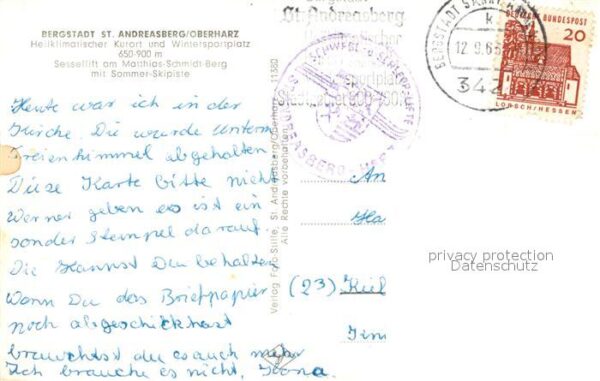 BERGSTADT ST. ANDREASBERG/OBERHARZ
Heilklimatischer Kurort und Wintersportplatz
650-900 m
Sessellift am Matthias-Schmidt-Berg
mit Sommer-Skipiste
Heute war ich in der
Kirche. Die wurde unterm
Freienhimmel abgehalten
Diese Karte bitte nicht
Werner geben es ist ein
sonder Stempel darauf.
Die Kannst Du behalten
Wann Du das Briefpapier
noch abgeschickhast
brauchtst du es auch mehr
Ich brauche es nicht, Ilona.
Verlag Foto-Stille, St. Andreasberg/Oberharz
Alle Rechte vorbehalten
11382
St. Andreasberg
SCHWEBE- u. SCHLEPPLIFTE
BERGSTADT SANKT
k
12.9.65
342
DEUTSCHE BUNDESPOST
20
LORSCH/HESSEN
An
Ha
(23) Kiel
Im
privacy protection
Datenschutz